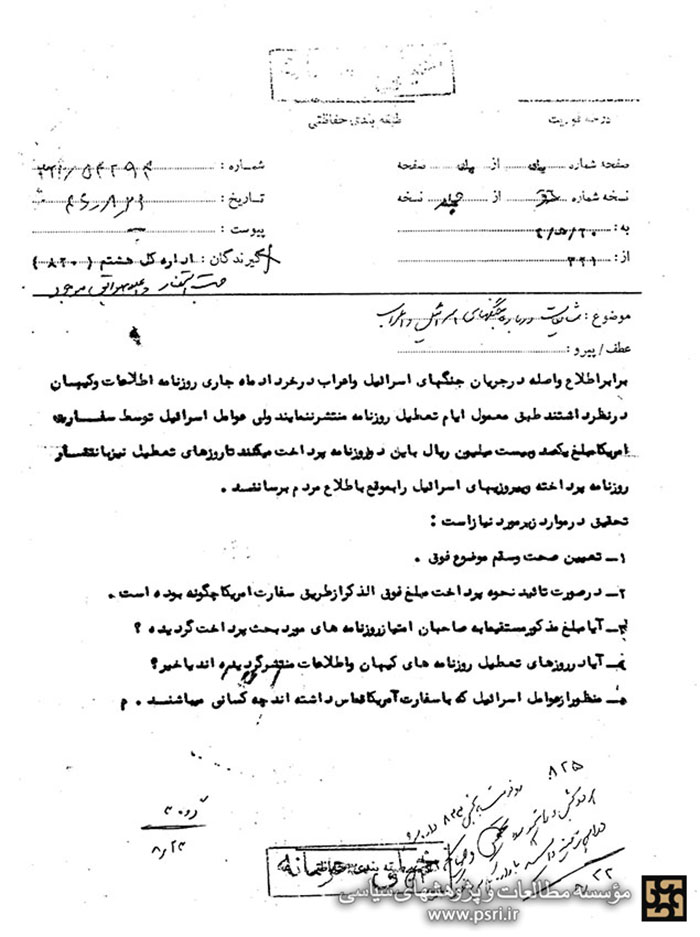 طبقه بندی حفاظتی
درجه فوریت
صفحه شماره یک از یک صفحه
نسخه شماره از چهار نسخه
به : ۲۰ / ه / ۲
از : ۲۲۱
شماره :
تاریخ :
پیوست :
گیرندگان : اداره کل هشتم ( ۸۲۰ )
موضوع : شایعات درباره جنگهای اسرائیل و اعراب
عطف / پیرو :
برابر اطلاع واصله در جریان جنگهای اسرائیل واعراب در خرداد ماه جاری روزنامه اطلاعات وکیهان
در نظر داشتند طبق معمول ایام تعطیل روزنامه منتشر ننمایند ولی عوامل اسرائیل توسط سفارت
امریکا مبلغ یکصد وبیست میلیون ریال باین دو روزنامه پرداخت میکنند تا روزهای تعطیل نیز بانتشار
روزنامه پرداخته وپیروزیهای اسرائیل را بموقع باطلاع مردم برسانند .
تحقیق در موارد زیر مورد نیاز است :
۱ـ تعیین صحت وسقم موضوع فوق .
۲ـ در صورت تائید نحوه پرداخت مبلغ فوق الذکر از طریق سفارت امریکا چگونه بوده است .
۳ـ آیا مبلغ مذکور مستقیما به صاحبان امتیاز روزنامه های مورد بحث پرداخت گردیده ؟
۴ـ آیا در روزهای تعطیل روزنامه های کیهان واطلاعات منتشر گردیده اند یا خیر ؟
۵ـ منظور از عوامل اسرائیل که با سفارت آمریکا تماس داشته اند چه کسانی میباشند . م
۸۲۵
گروه ۳
۸/۲۳
خیلی محرمانه
مؤسسه مطالعات و پژوهشهای سیاسی
www.psri.ir